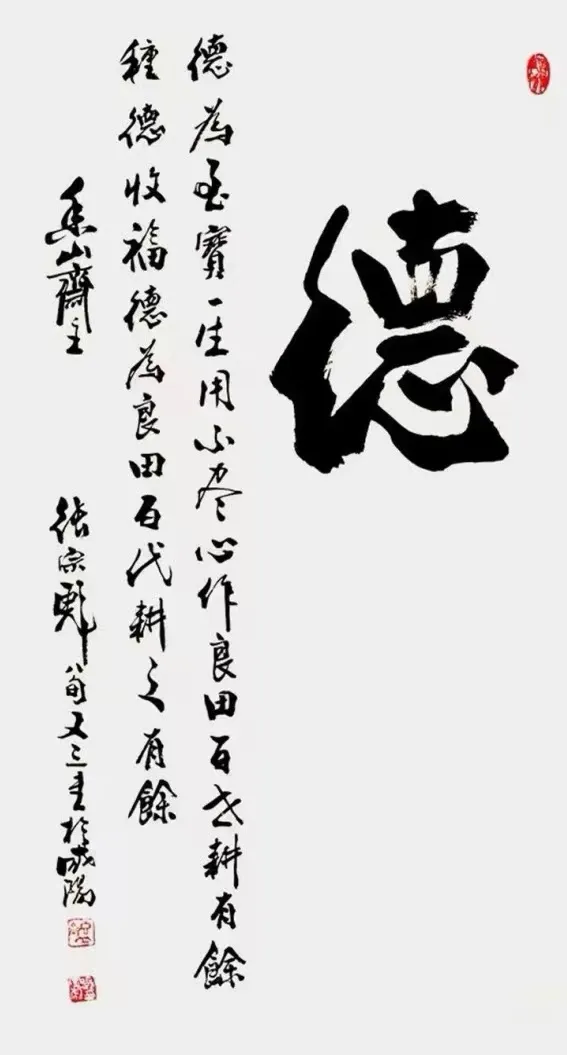 德
德為至寶一生用不盡心作良田百世耕有餘
種德收福德為良田百代耕之有餘
香山齋主 張宗彪 八旬又三書於咸陽